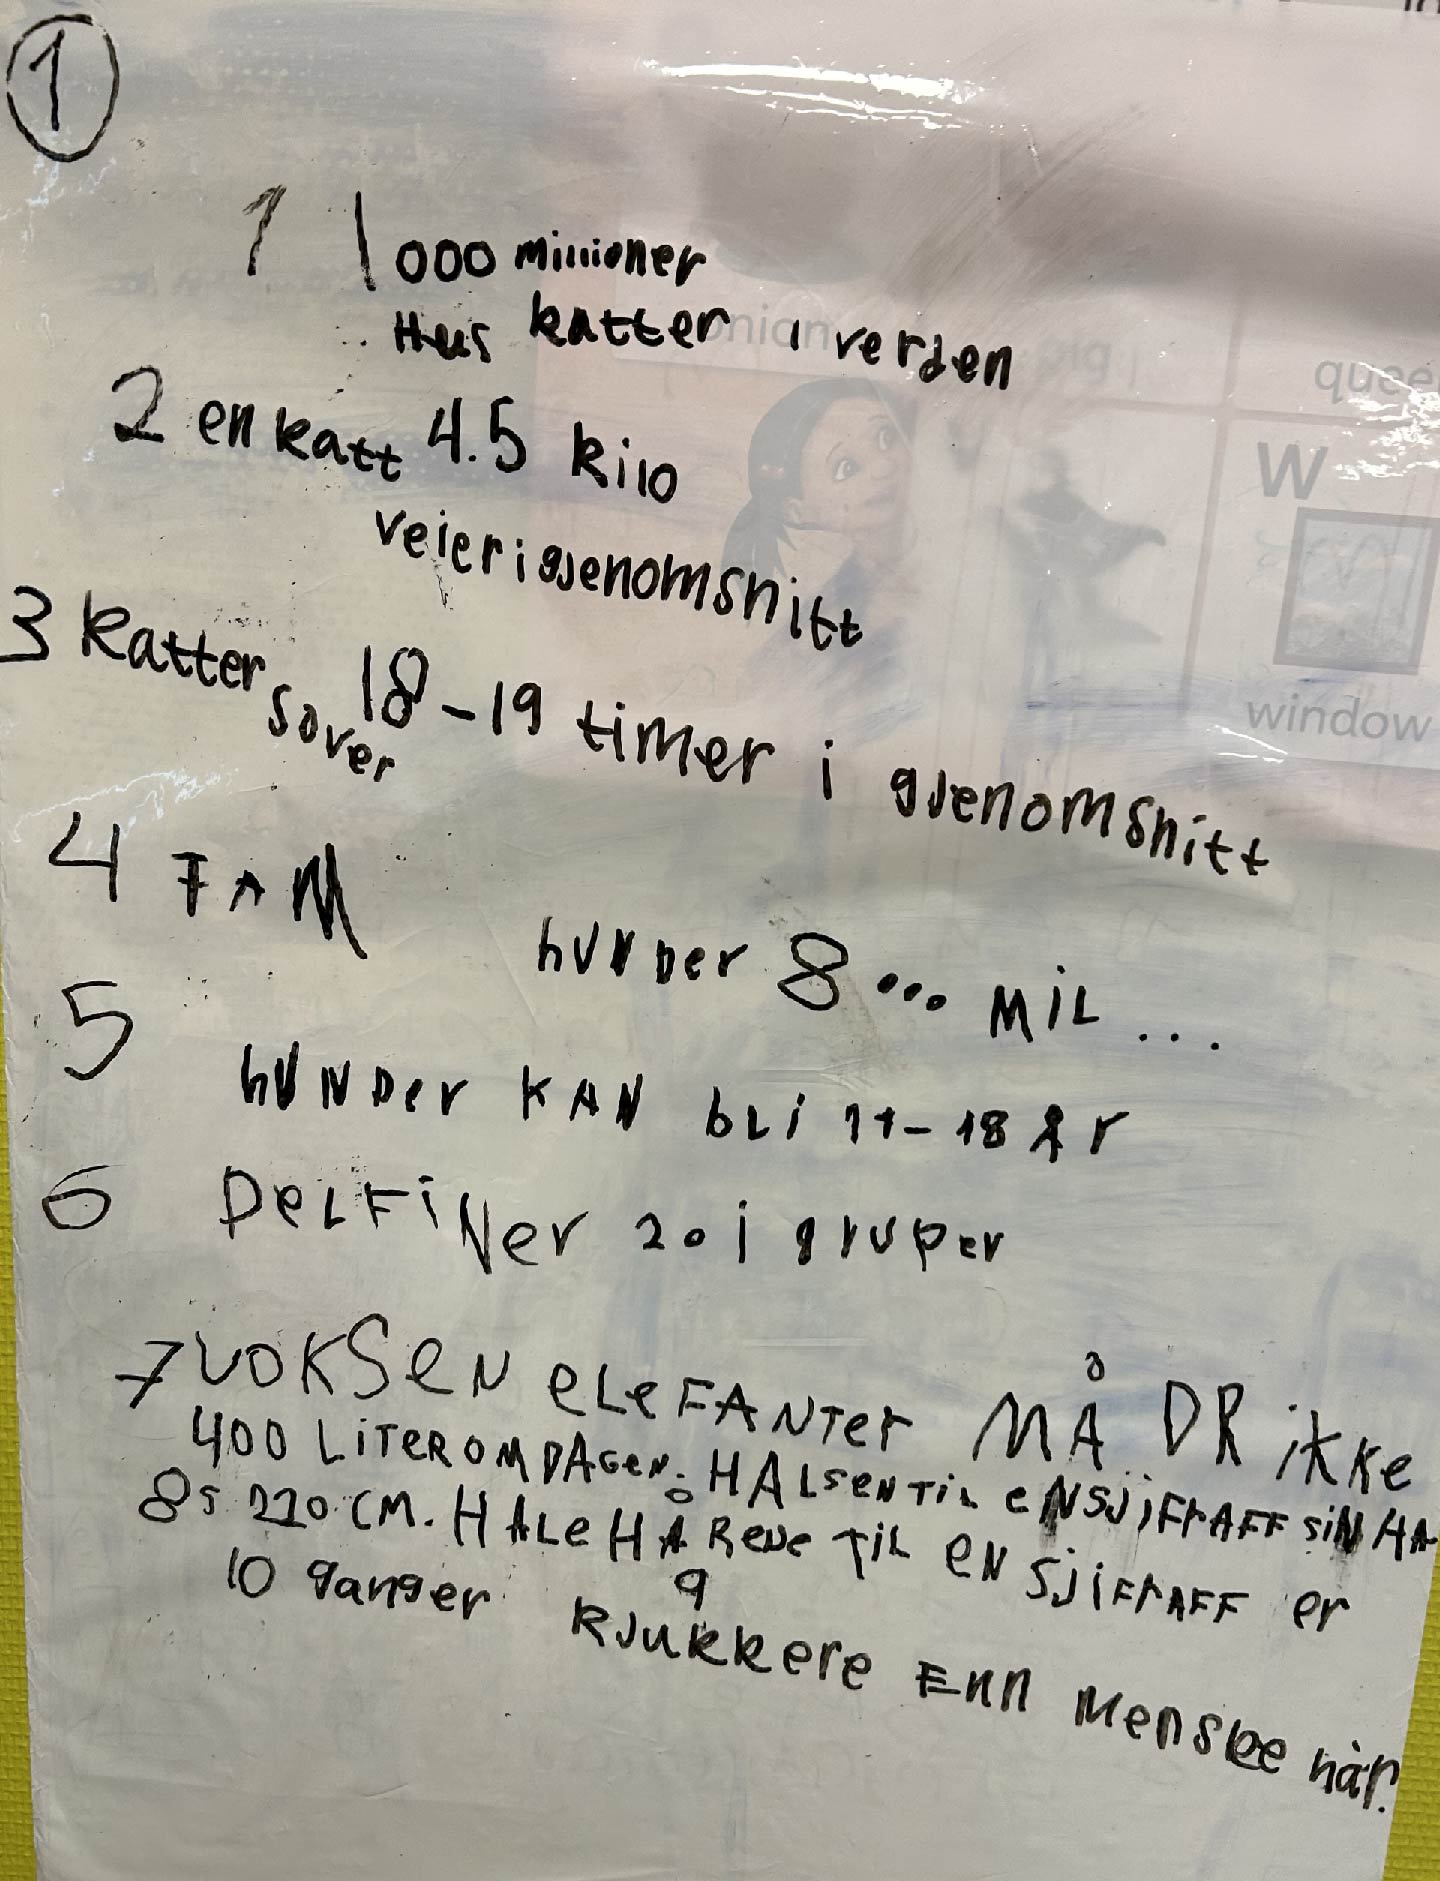 1
1 1000 millioner
Hus katter i verden
2 en katt 4.5 kilo
veier i gjenomsnitt
3 katter sover 18-19 timer i gjenomsnitt
4 FAM
hunder 8... MiL...
5 hUNDer KAN bLi 11-18 År
6 DeLFiNer 20 i gruper
7 VOKSeN eLeFANTer MÅ DRikke
400 LiTER OM DAGeN. HALSeN TiL eN SJiFrAFF SiN HA
8 S 220 CM. HALe HÅReNe TiL eN SJiFrAFF er
10 ganger 9 kjukkere Enn Menske hår.
onian
queen
W
window